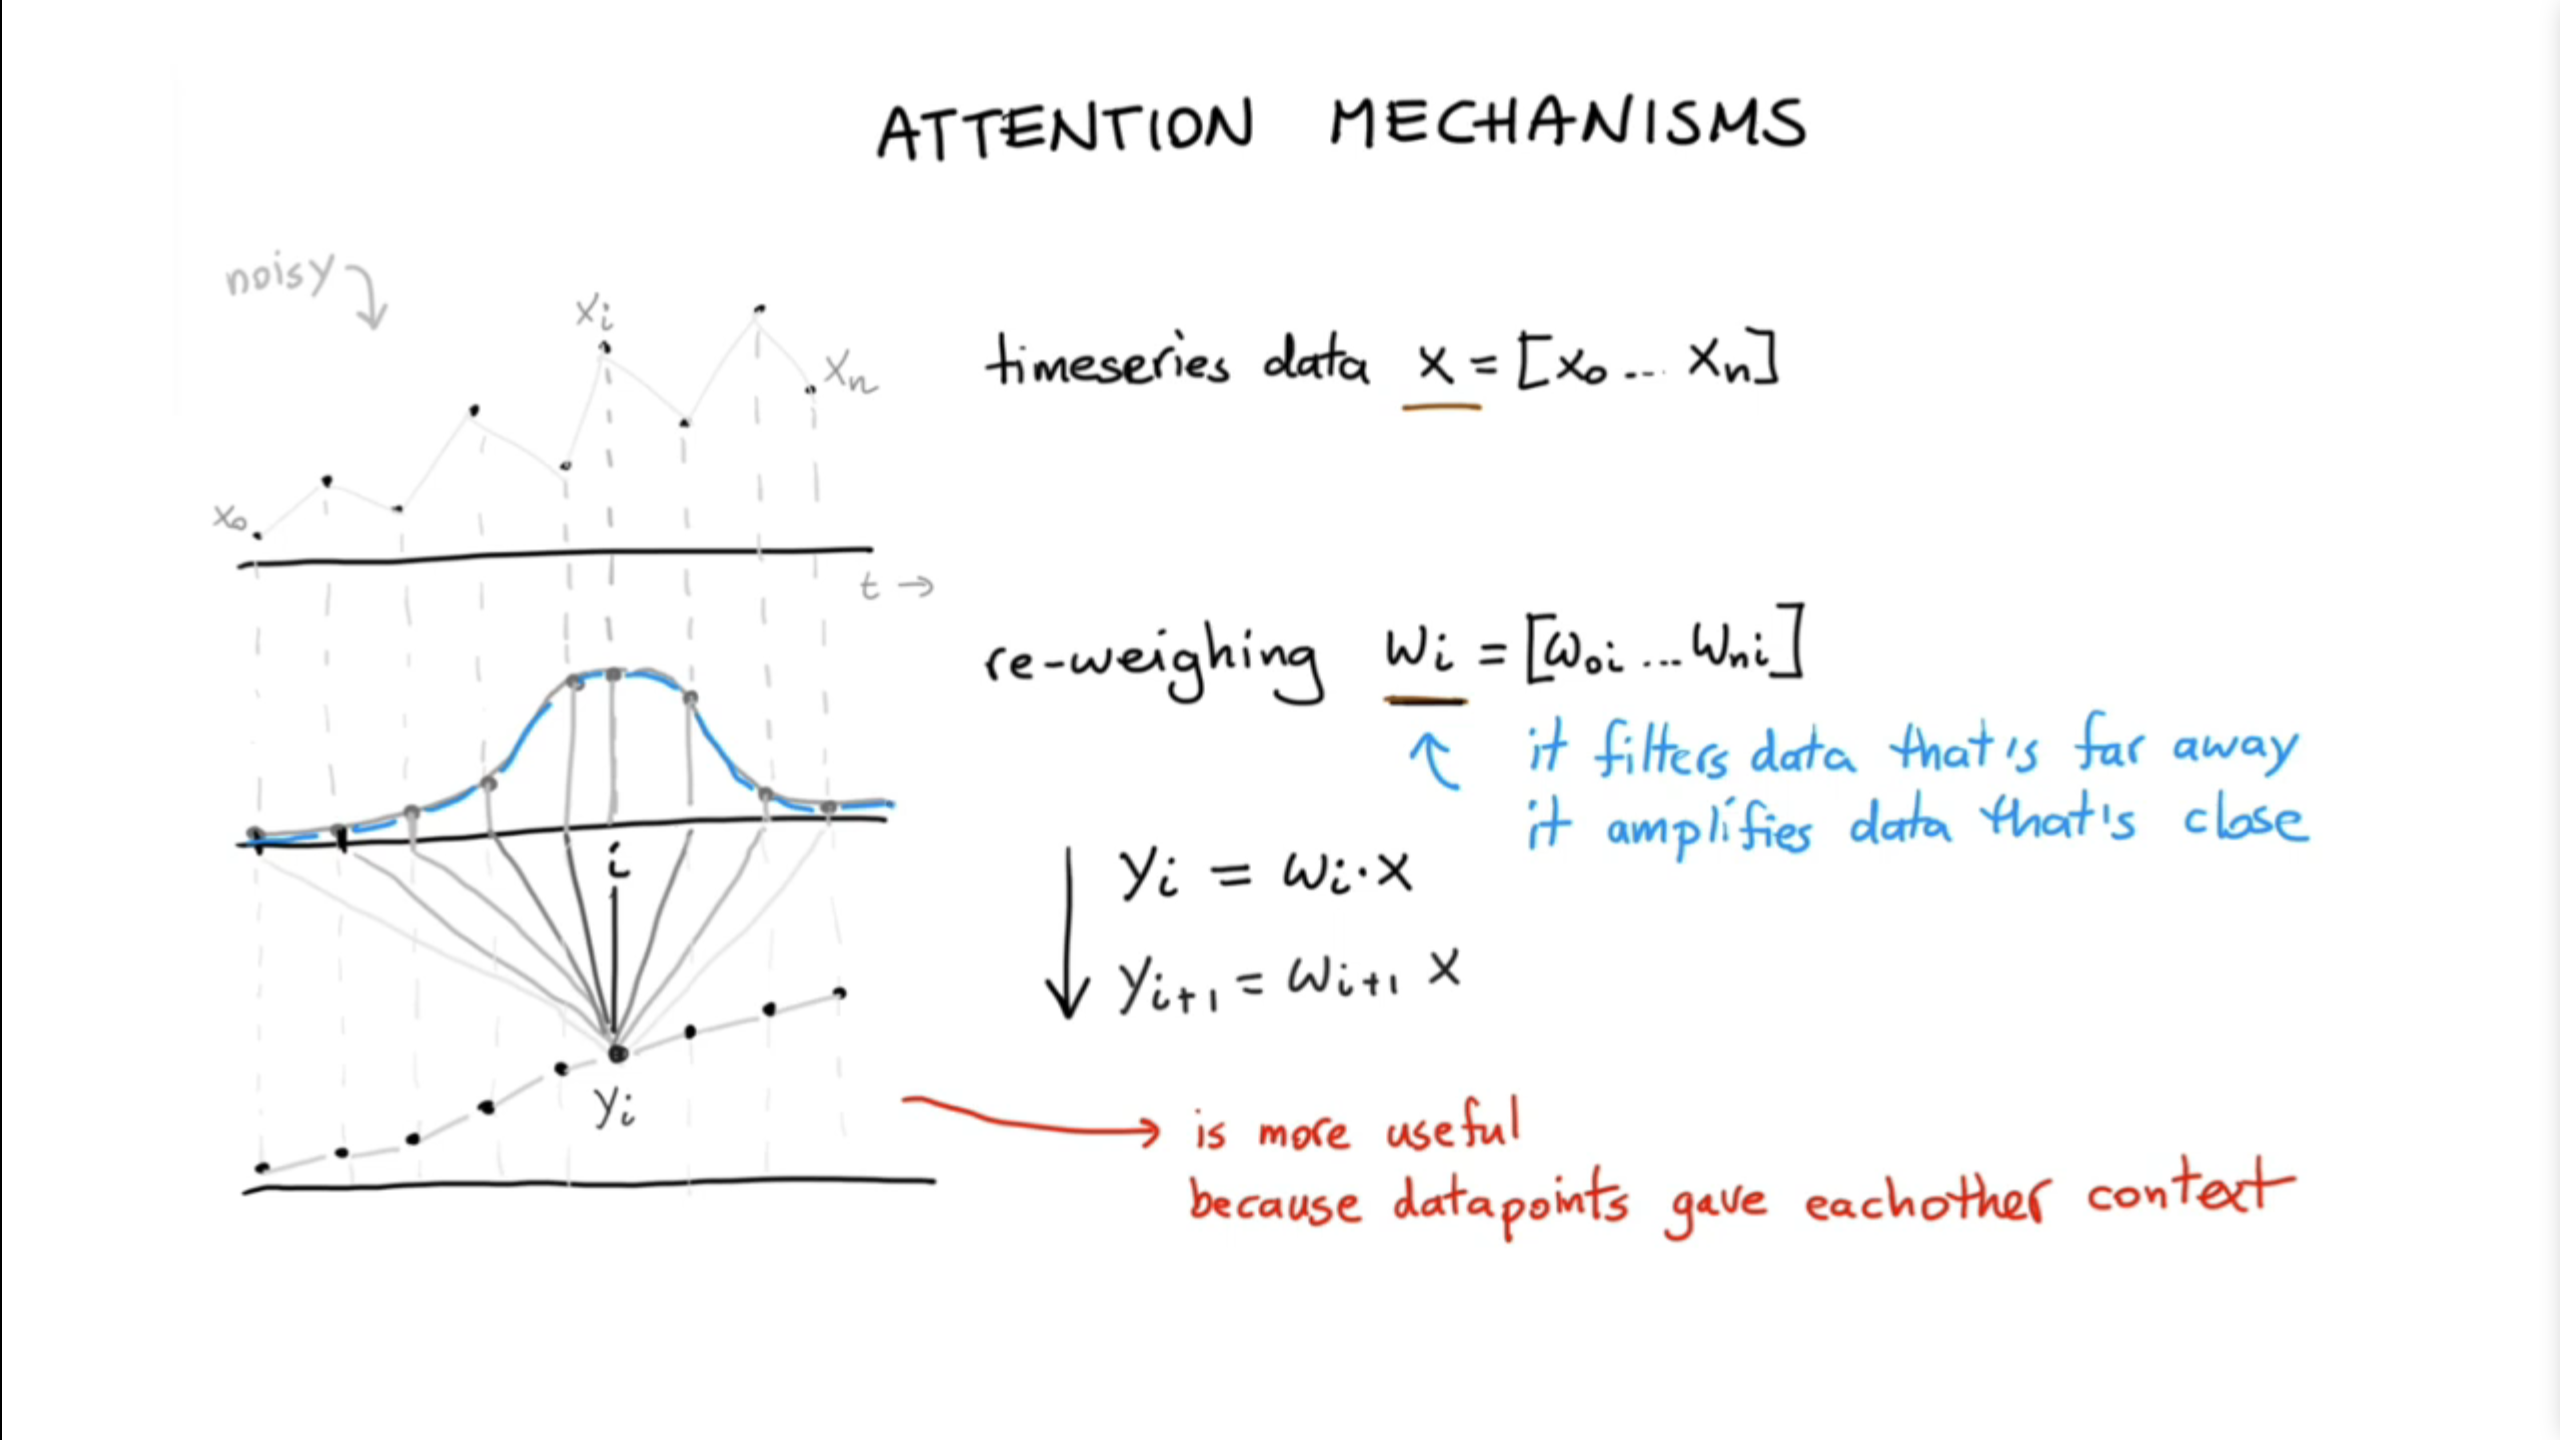 ATTENTION MECHANISMS
noisy
xi
xn
x0
t →
timeseries data x = [x0 ... xn]
re-weighing wi = [w0i ... wni]
it filters data that's far away
it amplifies data that's close
i
yi = wi · x
yi+1 = wi+1 x
yi
is more useful
because datapoints gave eachother context